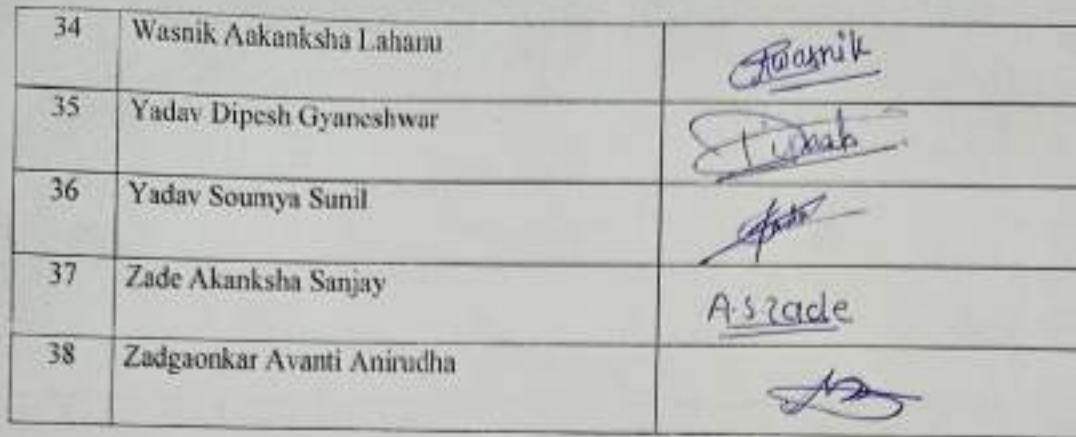 34 Wasnik Aakanksha Lahanu Awasnik
35 Yadav Dipesh Gyaneshwar
36 Yadav Soumya Sunil
37 Zade Akanksha Sanjay A.S Zade
38 Zadgaonkar Avanti Anirudha